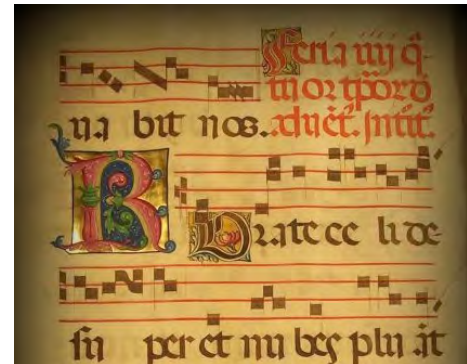 Feria iiij q̄-
tuor tp̄orō
na bit nos. aduēt. Intīt.
ROrate ce li de-
su per et nu bes plu āt